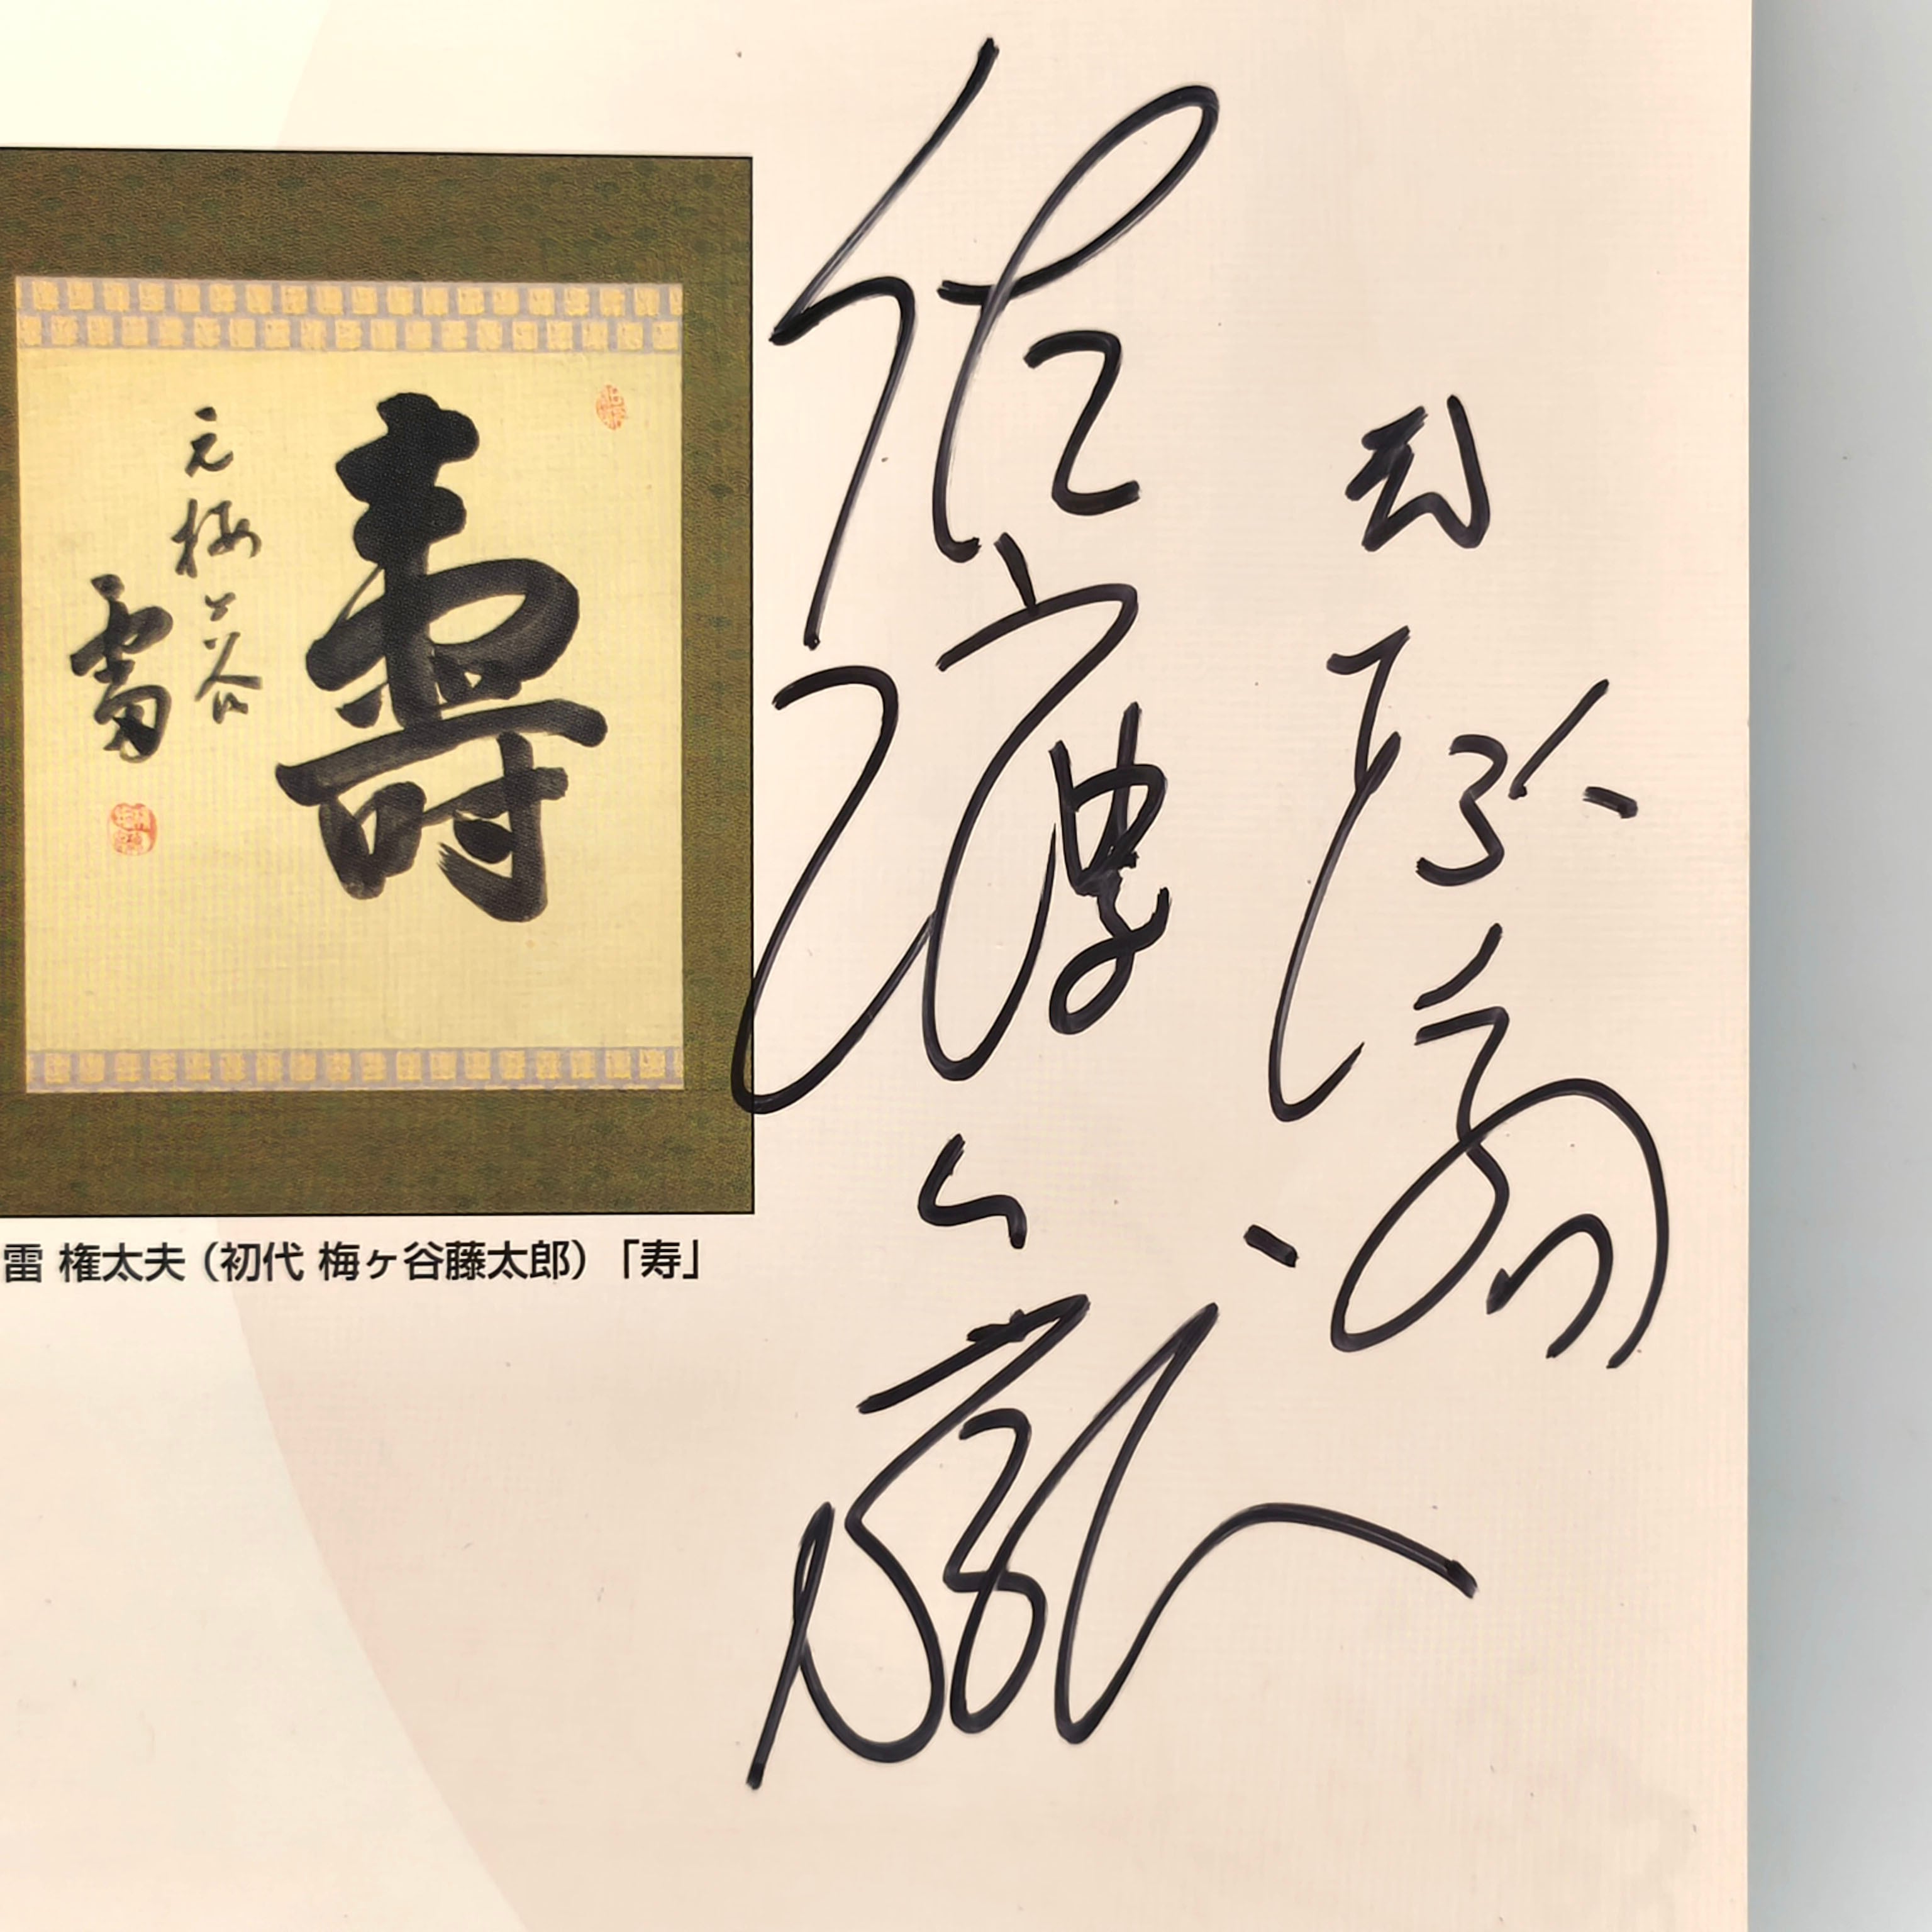 佐渡ヶ嶽
壽
元梅ヶ谷
雷
雷 権太夫（初代 梅ヶ谷藤太郎）「寿」